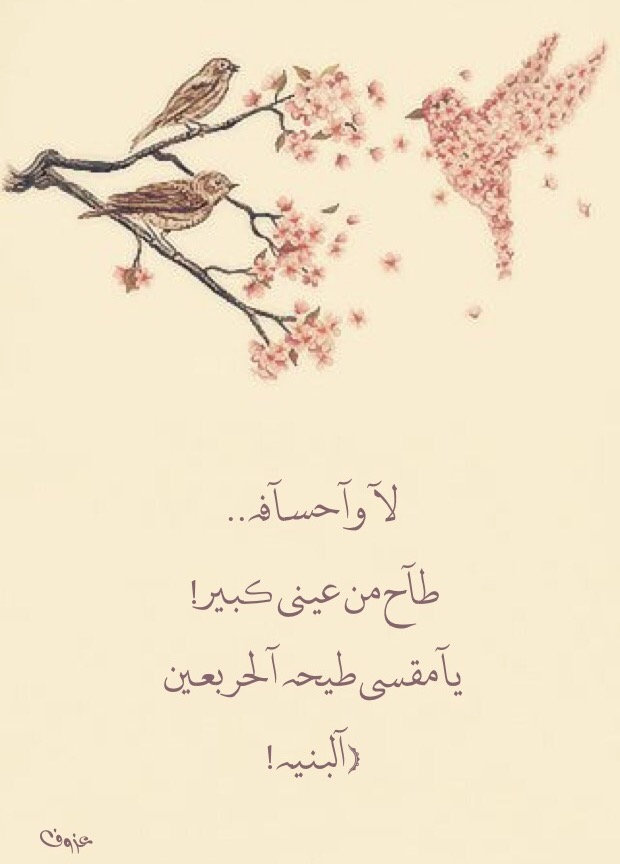 لآ وآحسآفه..
طآح من عيني كبير!
يآمقسى طيحه آلحر بعين
﴿آلبنيه!
عزوف